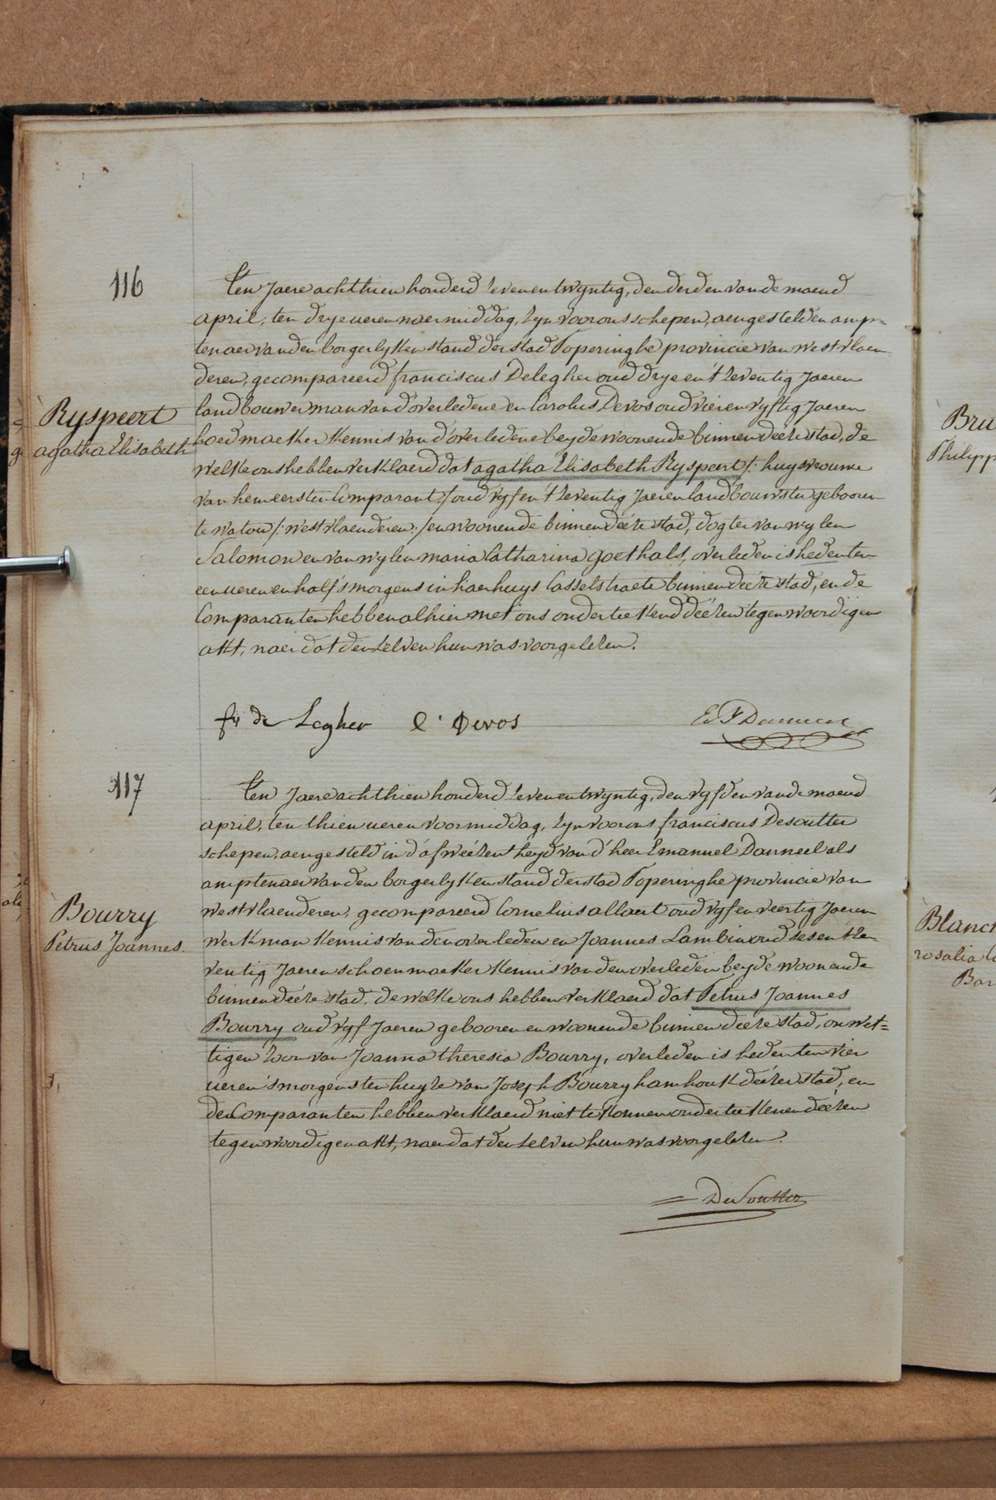 116
Ten Jaere achtthien honderd zevenentwyntig, den derden van de maend
april, ten drye ueren naermiddag, zyn voor ons schepen, aengestelden amp-
tenaer van den borgerlyken stand der stad Poperinghe provincie van westvlaen
deren, gecompareerd franciscus Delegher oud drye en 't zeventig Jaeren
landbouwer man van d'overledene en Carolus Devos oud vier en vyftig Jaeren
Ryspeert
agatha Elisabeth
hoedmaeker kennis van d'overledene beyde woonende binnen deéze stad, de
welke ons hebben verklaerd dat agatha Elisabeth Ryspeert /: huysvrouwe
van hem eersten Comparant :/ oud vyf en 't zeventig Jaeren landbouwster gebooren
te watou /: westvlaenderen :/ en woonende binnen deéze stad, dogter van wylen
Salomon en van wylen maria Catharina goethals, overleden is heden ten
een ueren en half 's morgens in haer huys Casselstraete binnen deéze stad, en de
Comparanten hebben alhier met ons onderteekend deézen tegenwoordigen
akt, naer dat den zelven hun was voorgelezen.
fs de Legher C. Devos Ed F Danneel
117
Ten Jaere achthien honderd zevenentwyntig, den vyfden van de maend
april, ten thien ueren voormiddag, zyn voor ons franciscus Desoutter
schepen, aengesteld in d'afweézentheyd van d'heer Emanuel Danneel als
amptenaer van den borgerlyken stand der stad Poperinghe provincie van
Bourry
Petrus Joannes
westvlaenderen, gecompareerd Cornelius allaert oud vyf en veertig Jaeren
werkman kennis van den overleden en Joannes Lambin oud zes en ze-
ventig Jaeren schoenmaeker kennis van den overleden beyde woonende
binnen deéze stad, de welke ons hebben verklaerd dat Petrus Joannes
Bourry oud vyf Jaeren gebooren en woonende binnen deéze stad, onwet=
tigen zoon van Joanna theresia Bourry, overleden is heden ten vier
ueren 's morgens ten huyze van Joseph Bourry hamhouk deézer stad, en
de Comparanten hebben verklaerd niet te konnen onderteekenen deézen
tegenwoordigen akt, naer dat den zelven hun was voorgelezen.
DeSoutter
Bru
Philipp
Blanc
rosalia
Bar